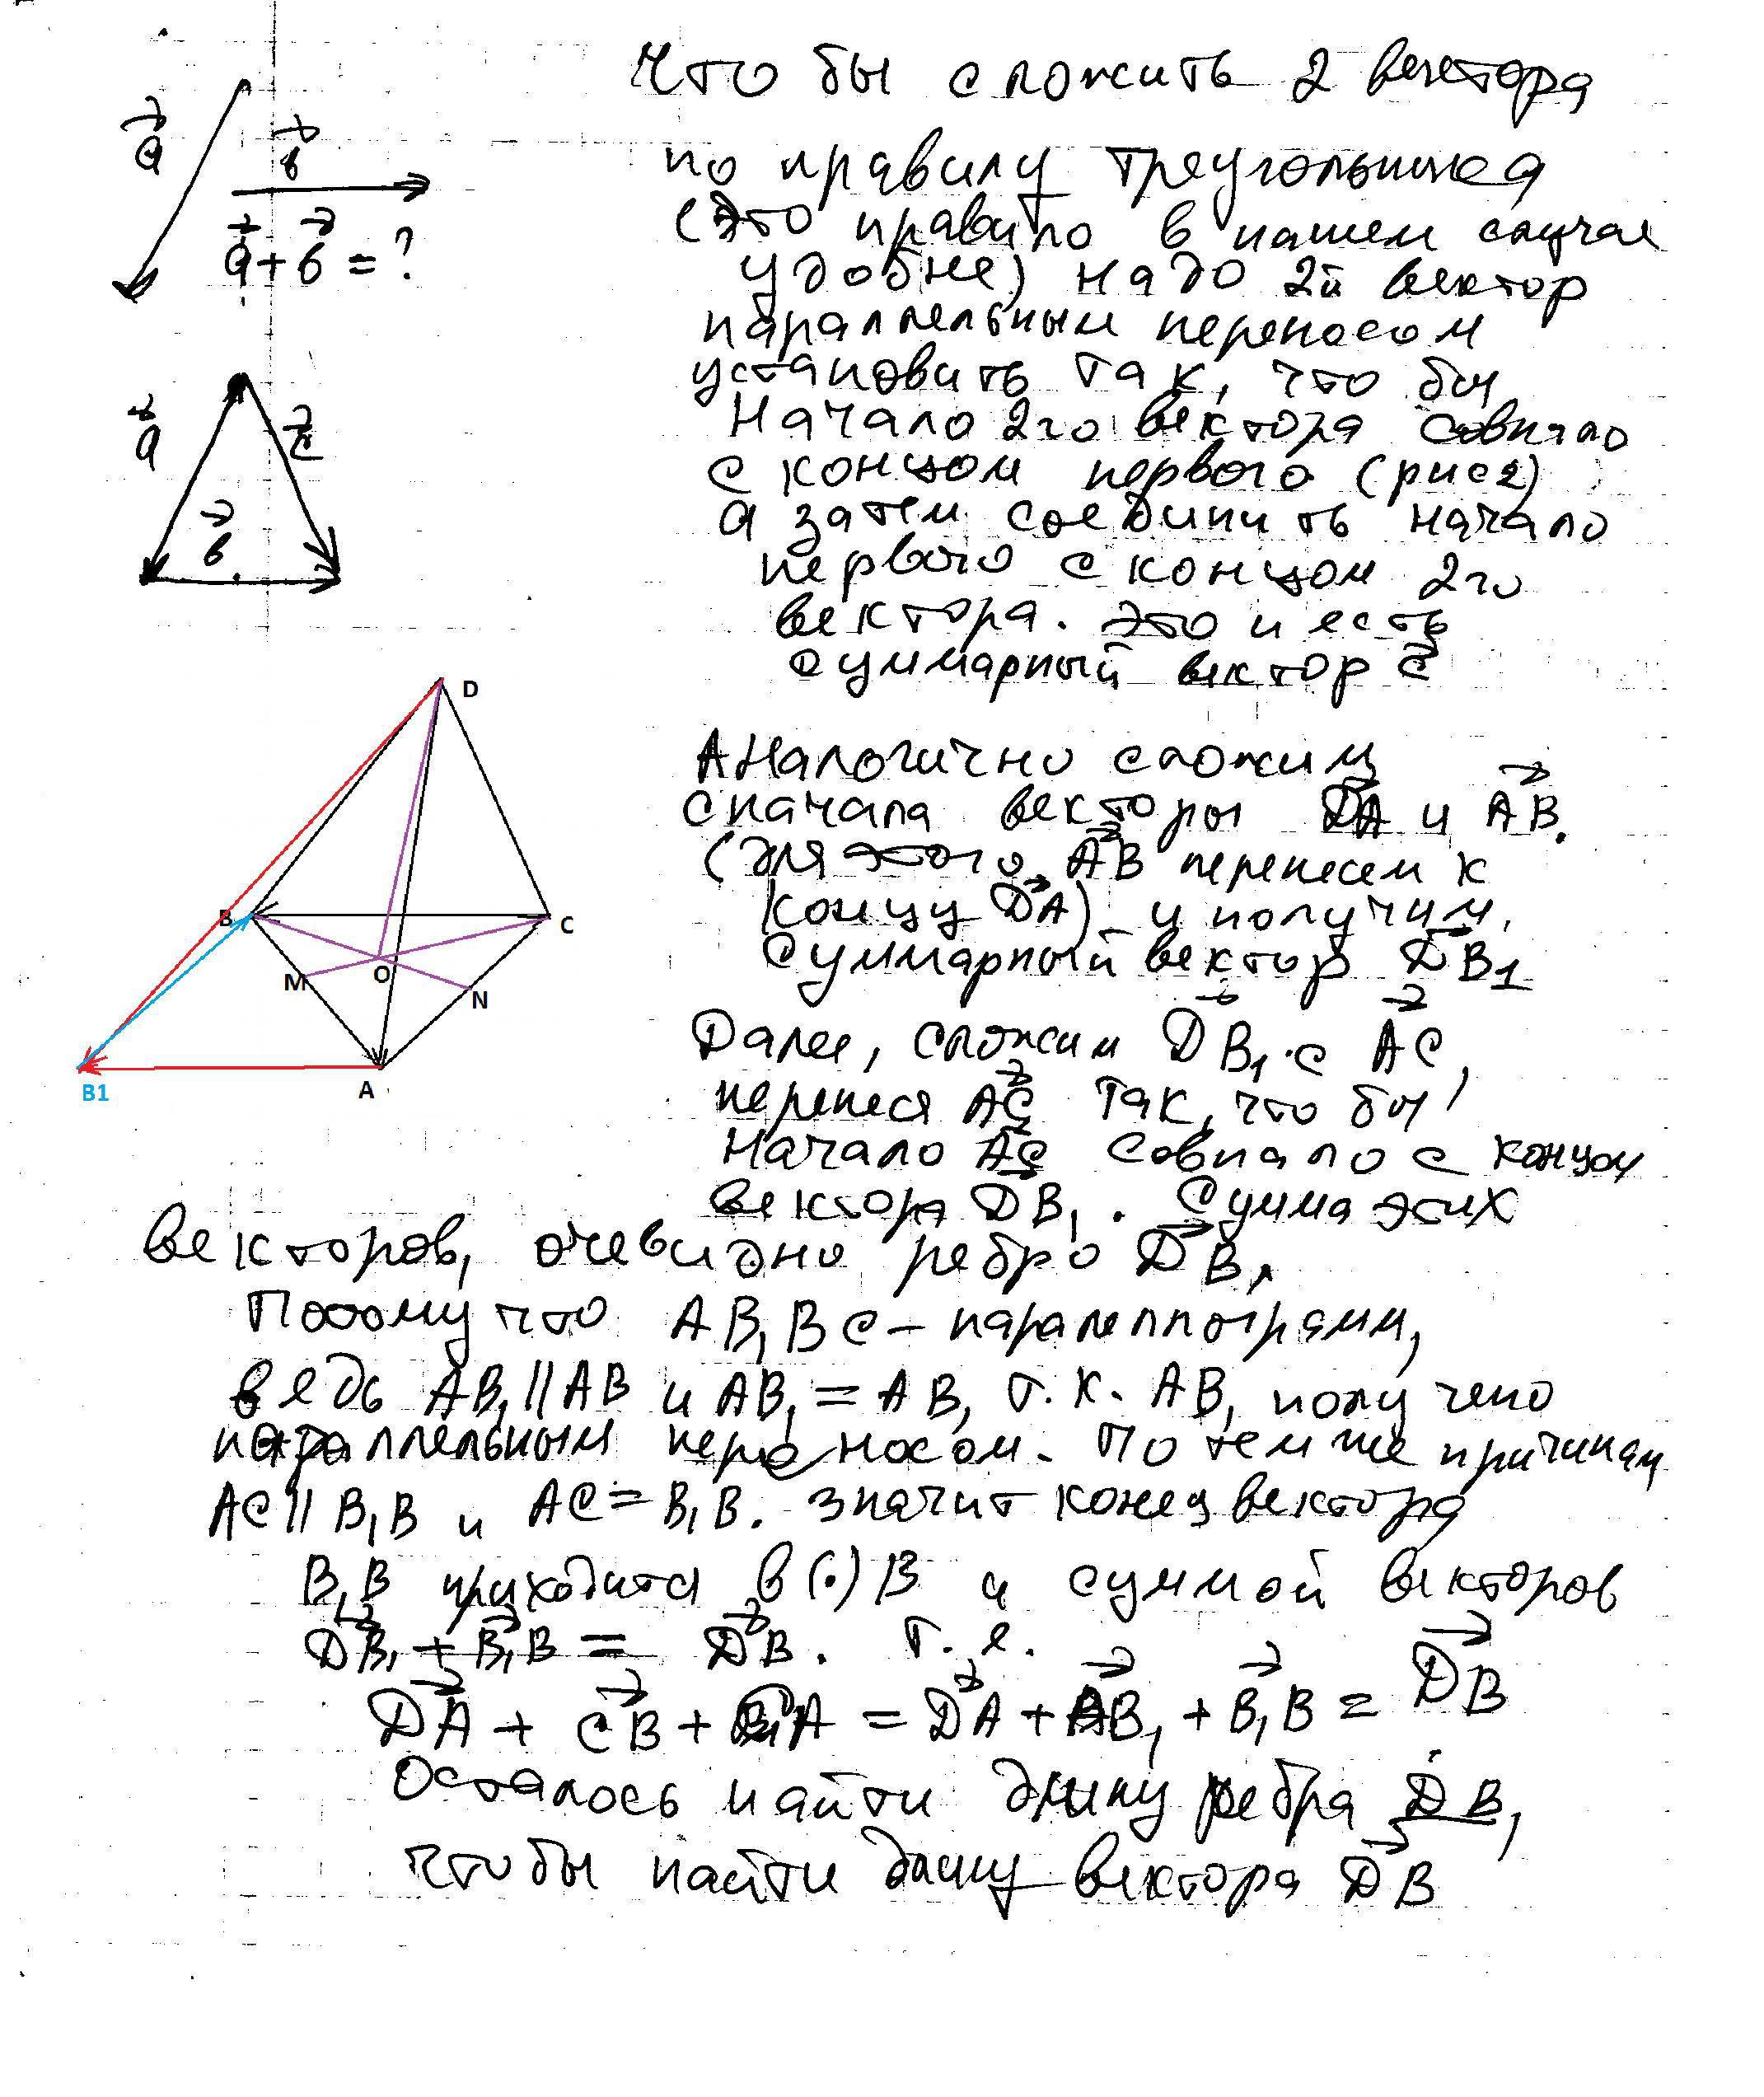 a
b
a + b = ?
a
c
b
Что бы сложить 2 вектора
по правилу треугольника
(это правило в нашем случае
удобне) надо 2й вектор
параллельным переносом
установить так, что бы
Начало 2го вектора совпало
с концом первого (рис2)
а затем соединить начало
первого с концом 2го
вектора. это и есть
суммарный вектор c
D
B
C
M
O
N
B1
A
Аналогично сложим
сначала векторы DA и AB.
(для этого AB перенесем к
концу DA) и получим
суммарный вектор DB1
Далее, сложим DB1 с AC,
перенеся AC так, что бы
Начало AC совпало с концом
вектора DB1. Сумма этих
векторов, очевидно ребро DB,
Потому что AB1BC - паралеллограмм,
ведь AB1 || AB и AB1 = AB, т.к. AB1 получено
параллельным переносом. По тем же причинам
AC || B1B и AC = B1B. значит конец вектора
B1B приходится в (·) B и суммой векторов
DB1 + B1B = DB. т.е.
DA + CB + A = DA + AB1 + B1B = DB
Осталось найти длину ребра DB,
чтобы найти длину вектора DB